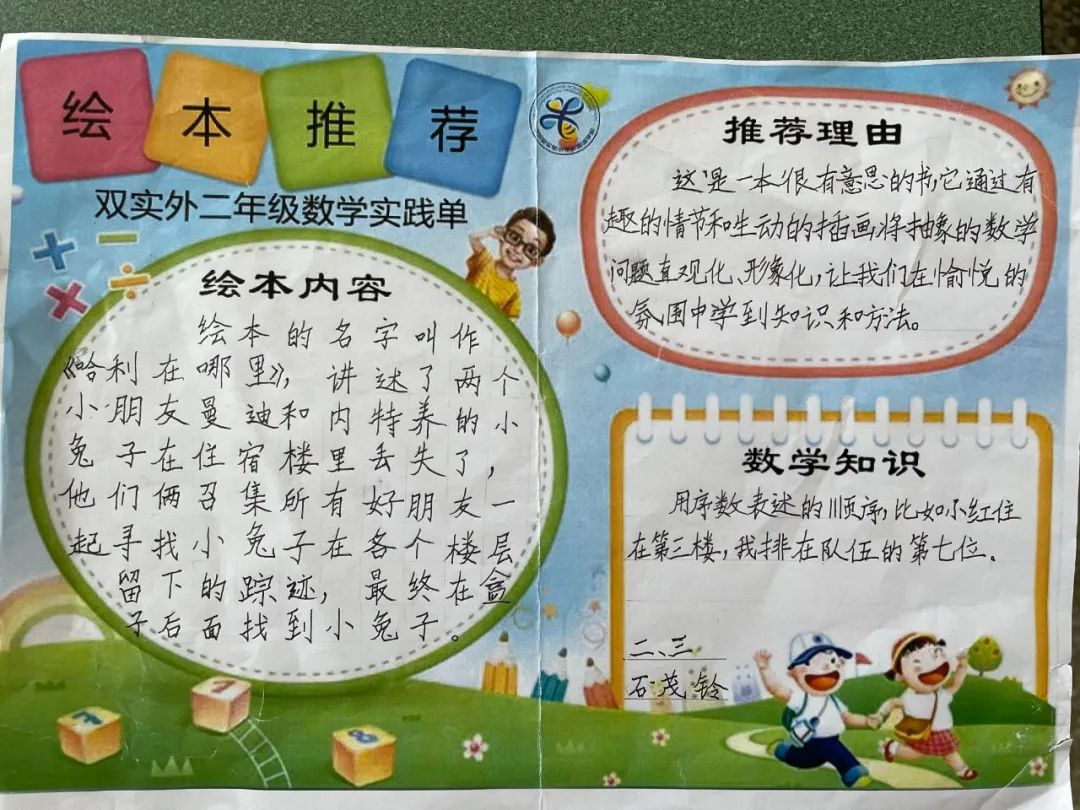 绘本推荐
双实外二年级数学实践单
绘本内容
绘本的名字叫作
《哈利在哪里》，讲述了两个
小朋友曼迪和内特养的小
兔子在住宿楼里丢失了，
他们俩召集所有好朋友一
起寻找小兔子在各个楼层
留下的踪迹，最终在盒
子后面找到小兔子。
推荐理由
这是一本很有意思的书，它通过有
趣的情节和生动的插画，将抽象的数学
问题直观化、形象化，让我们在愉悦的
氛围中学到知识和方法。
数学知识
用序数表述的顺序，比如小红住
在第三楼，我排在队伍的第七位．
二、三
石茂铃
7
1
8